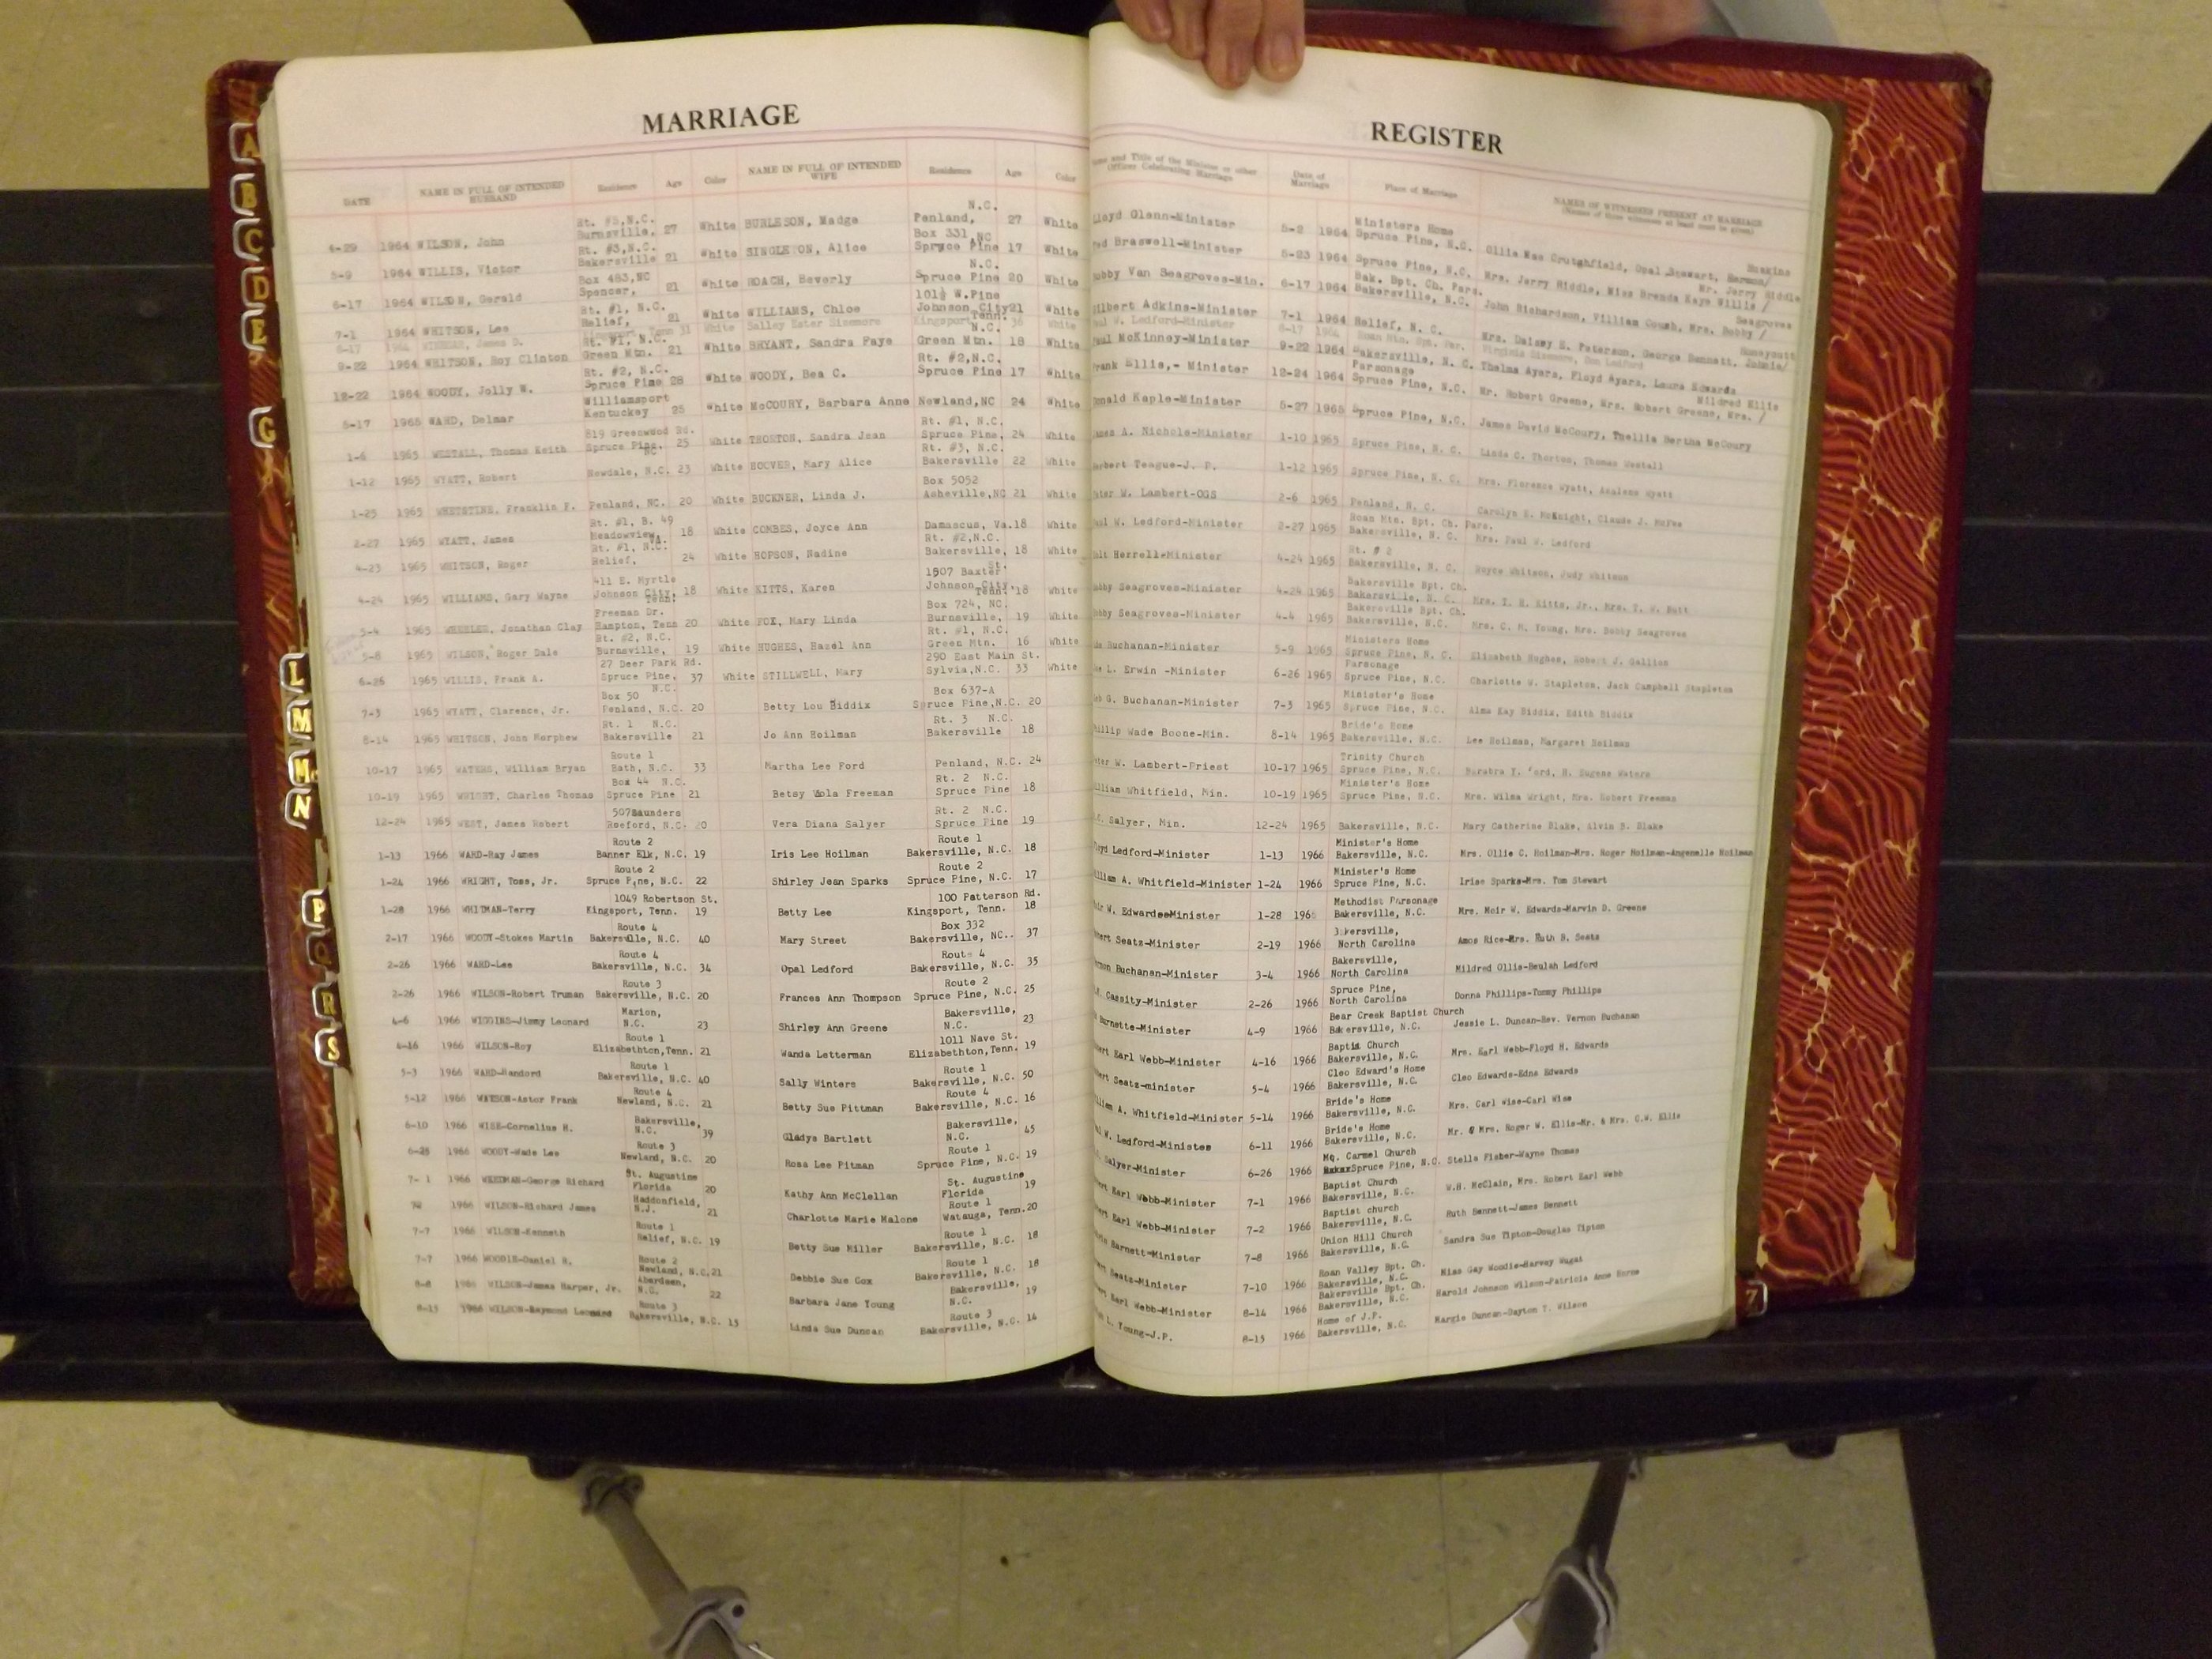 MARRIAGE
REGISTER
DATE NAME IN FULL OF INTENDED HUSBAND Residence Age Color NAME IN FULL OF INTENDED WIFE Residence Age Color Name and Title of the Minister or other Officer Celebrating Marriage Date of Marriage Place of Marriage NAMES OF WITNESSES PRESENT AT MARRIAGE
4-29 1964 WILSON, John Rt. #5, N.C. Burnsville, 27 White BURLESON, Madge Penland, N.C. 27 White Lloyd Glenn-Minister 5-2 1964 Ministers Home Spruce Pine, N.C. Ollie Mae Crutchfield, Opal Stewart, Herman/ Hoskins
5-9 1964 WILLIS, Victor Rt. #3, N.C. Bakersville 21 White SINGLETON, Alice Box 331, NC Spruce Pine 17 White Ted Braswell-Minister 5-23 1964 Spruce Pine, N.C. Mrs. Jerry Riddle, Miss Brenda Kaye Willis / Mr. Jerry Riddle
6-17 1964 WILSON, Gerald Box 483, NC Spencer, 21 White ROACH, Beverly N.C. Spruce Pine 20 White Bobby Van Seagroves-Min. 6-17 1964 Bak. Bpt. Ch. Pars. Bakersville, N.C. John Richardson, William Coush, Mrs. Bobby / Seagroves
7-1 1964 WHITSON, Lee Rt. #1, N.C. Relief, 21 White WILLIAMS, Chloe 101½ W. Pine Johnson City Tenn. 21 White Wilbert Adkins-Minister 7-1 1964 Relief, N. C. Mrs. Daisey S. Peterson, George Bennett, Johnie/ Honeycutt
6-17 1964 James D. Kingsport, Tenn 31 White Salley Ester Sizemore Kingsport 36 White W. Ledford-Minister 6-17 1964 Roan Mtn. Bpt. Par. Virginia Sizemore, Don Ledford
9-22 1964 WHITSON, Roy Clinton Rt. #1, N.C. Green Mtn. 21 White BRYANT, Sandra Faye N.C. Green Mtn. 18 White Paul McKinney-Minister 9-22 1964 Bakersville, N. C. Thelma Ayers, Floyd Ayers, Laura Edwards
12-22 1964 WOODY, Jolly W. Rt. #2, N.C. Spruce Pine 28 White WOODY, Bea C. Rt. #2, N.C. Spruce Pine 17 White Frank Ellis,- Minister 12-24 1964 Parsonage Spruce Pine, N.C. Mr. Robert Greene, Mrs. Robert Greene, Mrs. / Mildred Ellis
5-17 1965 WARD, Delmar Williamsport Kentucky 25 White McCOURY, Barbara Anne Newland, NC 24 White Donald Kaple-Minister 5-27 1965 Spruce Pine, N.C. James David McCoury, Thellis Bertha McCoury
1-6 1965 WESTALL, Thomas Keith 819 Greenwood Rd. Spruce Pine, NC 25 White THORTON, Sandra Jean Rt. #1, N.C. Spruce Pine, 24 White James A. Nichols-Minister 1-10 1965 Spruce Pine, N. C. Linda C. Thorton, Thomas Westall
1-12 1965 WYATT, Robert Newdale, N.C. 23 White HOOVER, Mary Alice Rt. #3, N.C. Bakersville 22 White Herbert Teague-J. P. 1-12 1965 Spruce Pine, N. C. Mrs. Florence Wyatt, Wyatt
1-25 1965 WHETSTINE, Franklin F. Penland, NC. 20 White BUCKNER, Linda J. Box 5052 Asheville, NC 21 White Peter W. Lambert-OGS 2-6 1965 Penland, N. C. Carolyn E. McKnight, Claude J.
2-27 1965 WYATT, James Rt. #1, B. 49 Meadowview, VA. 18 White COMBES, Joyce Ann Damascus, Va. 18 White Paul W. Ledford-Minister 2-27 1965 Roan Mtn. Bpt. Ch. Pars. Bakersville, N. C. Mrs. Paul W. Ledford
4-23 1965 WHITSON, Roger Rt. #1, N.C. Relief, 24 White HOPSON, Nadine Rt. #2, N.C. Bakersville, 18 White Herrell-Minister 4-24 1965 Rt. # 2 Bakersville, N. C. Royce Whitson, Judy Whitson
4-24 1965 WILLIAMS, Gary Wayne 411 E. Myrtle Johnson City, Tenn. 18 White KITTS, Karen 1507 Baxter St. Johnson City, Tenn. 18 White Bobby Seagroves-Minister 4-24 1965 Bakersville Bpt. Ch. Bakersville, N. C. Mrs. T. R. Kitts, Jr., Mrs. T. W. Hutt
5-4 1965 WHEELER, Jonathan Clay Freeman Dr. Hampton, Tenn 20 White FOX, Mary Linda Box 724, NC. Burnsville, 19 White Bobby Seagroves-Minister 4-4 1965 Bakersville Bpt. Ch. Bakersville, N.C. Mrs. C. M. Young, Mrs. Bobby Seagroves
5-8 1965 WILSON, Roger Dale Rt. #2, N.C. Burnsville, 19 White HUGHES, Hazel Ann Rt. #1, N.C. Green Mtn. 16 White Buchanan-Minister 5-9 1965 Ministers Home Spruce Pine, N. C. Elizabeth Hughes, Robert J. Gallion
6-26 1965 WILLIS, Frank A. 27 Deer Park Rd. Spruce Pine, N.C. 37 White STILLWELL, Mary 290 East Main St. Sylvia, N.C. 33 White L. Erwin -Minister 6-26 1965 Parsonage Spruce Pine, N.C. Charlotte W. Stapleton, Jack Campbell Stapleton
7-3 1965 WYATT, Clarence, Jr. Box 50 Penland, N.C. 20 Betty Lou Biddix Box 637-A Spruce Pine, N.C. 20 G. Buchanan-Minister 7-3 1965 Minister's Home Spruce Pine, N.C. Alma Kay Biddix, Edith Biddix
8-14 1965 WHITSON, John Morphew Rt. 1 N.C. Bakersville 21 Jo Ann Hoilman Rt. 3 N.C. Bakersville 18 Phillip Wade Boone-Min. 8-14 1965 Bride's Home Bakersville, N.C. Lee Hoilman, Margaret Hoilman
10-17 1965 WATERS, William Bryan Route 1 Bath, N.C. 33 Martha Lee Ford Penland, N.C. 24 Peter W. Lambert-Priest 10-17 1965 Trinity Church Spruce Pine, N.C. Barabra Y. Ford, H. Eugene Waters
10-19 1965 WRIGHT, Charles Thomas Box 44 N.C. Spruce Pine 21 Betsy Viola Freeman Rt. 2 N.C. Spruce Pine 18 William Whitfield, Min. 10-19 1965 Minister's Home Spruce Pine, N.C. Mrs. Wilma Wright, Mrs. Robert Freeman
12-24 1965 WEST, James Robert 507 Saunders Roeford, N.C. 20 Vera Diana Salyer Rt. 2 N.C. Spruce Pine 19 Salyer, Min. 12-24 1965 Bakersville, N.C. Mary Catherine Blake, Alvin B. Blake
1-13 1966 WARD-Ray James Route 2 Banner Elk, N.C. 19 Iris Lee Hoilman Route 1 Bakersville, N.C. 18 Floyd Ledford-Minister 1-13 1966 Minister's Home Bakersville, N.C. Mrs. Ollie C. Hoilman-Mrs. Roger Hoilman-Angenelle Hoilman
1-24 1966 WRIGHT, Toss, Jr. Route 2 Spruce Pine, N.C. 22 Shirley Jean Sparks Route 2 Spruce Pine, N.C. 17 William A. Whitfield-Minister 1-24 1966 Minister's Home Spruce Pine, N.C. Irise Sparks-Mrs. Tom Stewart
1-28 1966 WHITMAN-Terry 1049 Robertson St. Kingsport, Tenn. 19 Betty Lee 100 Patterson Rd. Kingsport, Tenn. 18 Moir W. Edwards-Minister 1-28 1966 Methodist Parsonage Bakersville, N.C. Mrs. Moir W. Edwards-Marvin D. Greene
2-17 1966 WOODY-Stokes Martin Route 4 Bakersville, N.C. 40 Mary Street Box 332 Bakersville, NC.. 37 Robert Seats-Minister 2-19 1966 Bakersville, North Carolina Amos Rice-Mrs. Ruth B. Seats
2-26 1966 WARD-Lee Route 4 Bakersville, N.C. 34 Opal Ledford Route 4 Bakersville, N.C. 35 Vernon Buchanan-Minister 3-4 1966 Bakersville, North Carolina Mildred Ollis-Beulah Ledford
2-26 1966 WILSON-Robert Truman Route 3 Bakersville, N.C. 20 Frances Ann Thompson Route 2 Spruce Pine, N.C. 25 Cassity-Minister 2-26 1966 Spruce Pine, North Carolina Donna Phillips-Tommy Phillips
4-6 1966 WIGGINS-Jimmy Leonard Marion, N.C. 23 Shirley Ann Greene Bakersville, N.C. 23 Burnette-Minister 4-9 1966 Bear Creek Baptist Church Bakersville, N.C. Jessie L. Duncan-Rev. Vernon Buchanan
4-16 1966 WILSON-Roy Route 1 Elizabethton, Tenn. 21 Wanda Letterman 1011 Nave St. Elizabethton, Tenn. 19 Robert Earl Webb-Minister 4-16 1966 Baptist Church Bakersville, N.C. Mrs. Earl Webb-Floyd H. Edwards
5-3 1966 WARD-Handord Route 1 Bakersville, N.C. 40 Sally Winters Route 1 Bakersville, N.C. 50 Robert Seatz-minister 5-4 1966 Cleo Edward's Home Bakersville, N.C. Cleo Edwards-Edna Edwards
5-12 1966 WATSON-Astor Frank Route 4 Newland, N.C. 21 Betty Sue Pittman Route 4 Bakersville, N.C. 16 William A. Whitfield-Minister 5-14 1966 Bride's Home Bakersville, N.C. Mrs. Carl Wise-Carl Wise
6-10 1966 WISE-Cornelius H. Bakersville, N.C. 39 Gladys Bartlett Bakersville, N.C. 45 Paul W. Ledford-Ministes 6-11 1966 Bride's Home Bakersville, N.C. Mr. & Mrs. Roger W. Ellis-Mr. & Mrs. C.W. Ellis
6-25 1966 WOODY-Wade Lee Route 3 Newland, N.C. 20 Rosa Lee Pitman Route 1 Spruce Pine, N.C. 19 Salyer-Minister 6-26 1966 Mt. Carmel Church Spruce Pine, N.C. Stella Fisher-Wayne Thomas
7-1 1966 WEEDMAN-George Richard St. Augustine Florida 20 Kathy Ann McClellan St. Augustine Florida 19 Robert Earl Webb-Minister 7-1 1966 Baptist Church Bakersville, N.C. W.H. McClain, Mrs. Robert Earl Webb
1966 WILSON-Richard James Haddonfield, N.J. 21 Charlotte Marie Malone Route 1 Watauga, Tenn. 20 Robert Earl Webb-Minister 7-2 1966 Baptist church Bakersville, N.C. Ruth Bennett-James Bennett
7-7 1966 WILSON-Kenneth Route 1 Relief, N.C. 19 Betty Sue Miller Route 1 Bakersville, N.C. 18 Barnett-Minister 7-8 1966 Union Hill Church Bakersville, N.C. Sandra Sue Tipton-Douglas Tipton
7-7 1966 WOODIE-Daniel H. Route 2 Newland, N.C. 21 Debbie Sue Cox Route 1 Bakersville, N.C. 18 Robert Seatz-Minister 7-10 1966 Roan Valley Bpt. Ch. Bakersville, N.C. Miss Gay Woodie-Harvey
8-8 1966 WILSON-James Harper, Jr. Aberdeen, N.C. 22 Barbara Jane Young Bakersville, N.C. 19 Robert Earl Webb-Minister 8-14 1966 Bakersville Bpt. Ch. Bakersville, N.C. Harold Johnson Wilson-Patricia Anne Horne
8-13 1966 WILSON-Raymond Leonard Route 3 Bakersville, N.C. 15 Linda Sue Duncan Route 3 Bakersville, N.C. 14 L. Young-J.P. 8-13 1966 Home of J.P. Bakersville, N.C. Margie Duncan-Dayton T. Wilson
A
B
C
D
E
G
L
M
Mc
N
P
Q
R
S
7